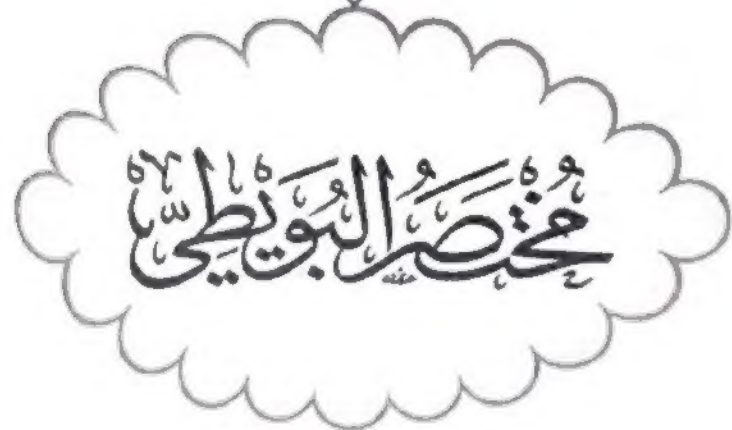 مُختَصَرُ البُوَيْطِيّ